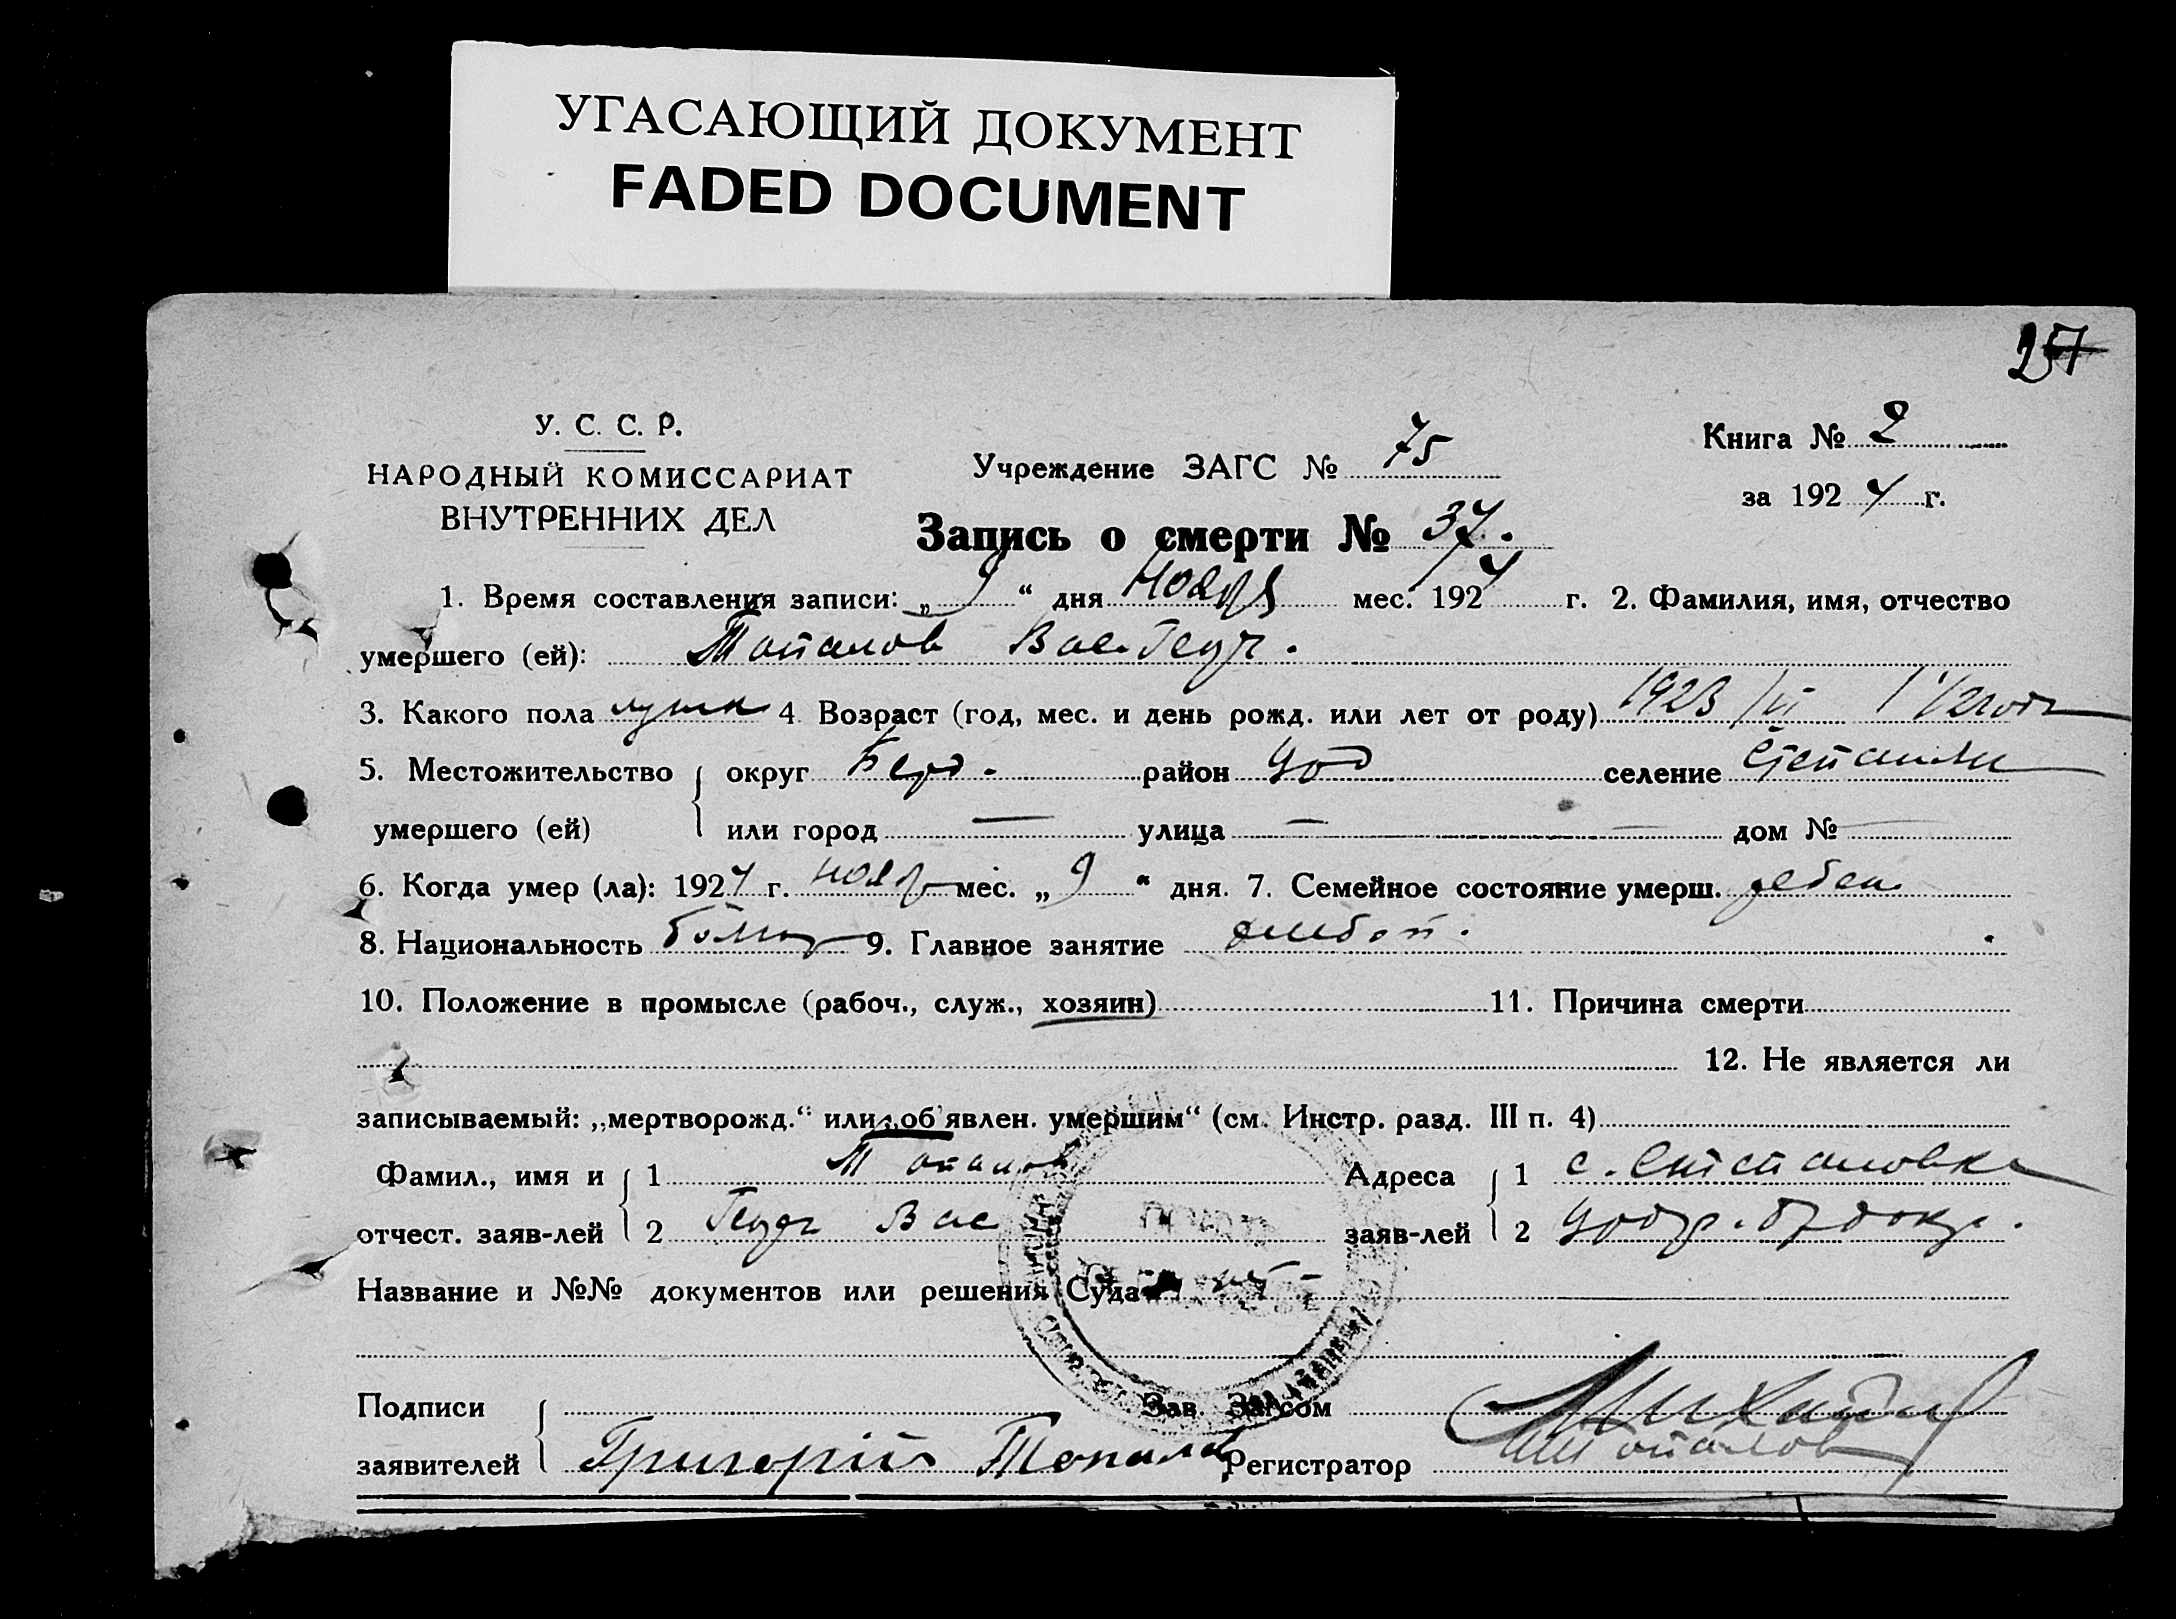 УГАСАЮЩИЙ ДОКУМЕНТ
FADED DOCUMENT
У. С. С. Р.
НАРОДНЫЙ КОМИССАРИАТ
ВНУТРЕННИХ ДЕЛ
Учреждение ЗАГС № 75
Книга № 2
за 1924 г.
Запись о смерти № 37.
1. Время составления записи: „9“ дня Ноябр мес. 1924 г. 2. Фамилия, имя, отчество
умершего (ей): Топалов Вас.
3. Какого пола мужск 4. Возраст (год, мес. и день рожд. или лет от роду) 1923/VI 1 1/2 года
5. Местожительство округ Берд. район Цод селение Степановк
умершего (ей) или город — улица — дом № —
6. Когда умер (ла): 1924 г. нояб мес. „9“ дня. 7. Семейное состояние умерш. ребен
8. Национальность болгар 9. Главное занятие хлебоп.
10. Положение в промысле (рабоч., служ., хозяин) 11. Причина смерти
12. Не является ли
записываемый: „мертворожд.“ или „об'явлен. умершим“ (см. Инстр. разд. III п. 4)
Фамил., имя и 1 Топалов Адреса 1 с. Степановка
отчест. заяв-лей 2 Вас заяв-лей 2
Название и №№ документов или решения Суда
Подписи Зав. Загсом
заявителей Григорій Топалов Регистратор Топалов